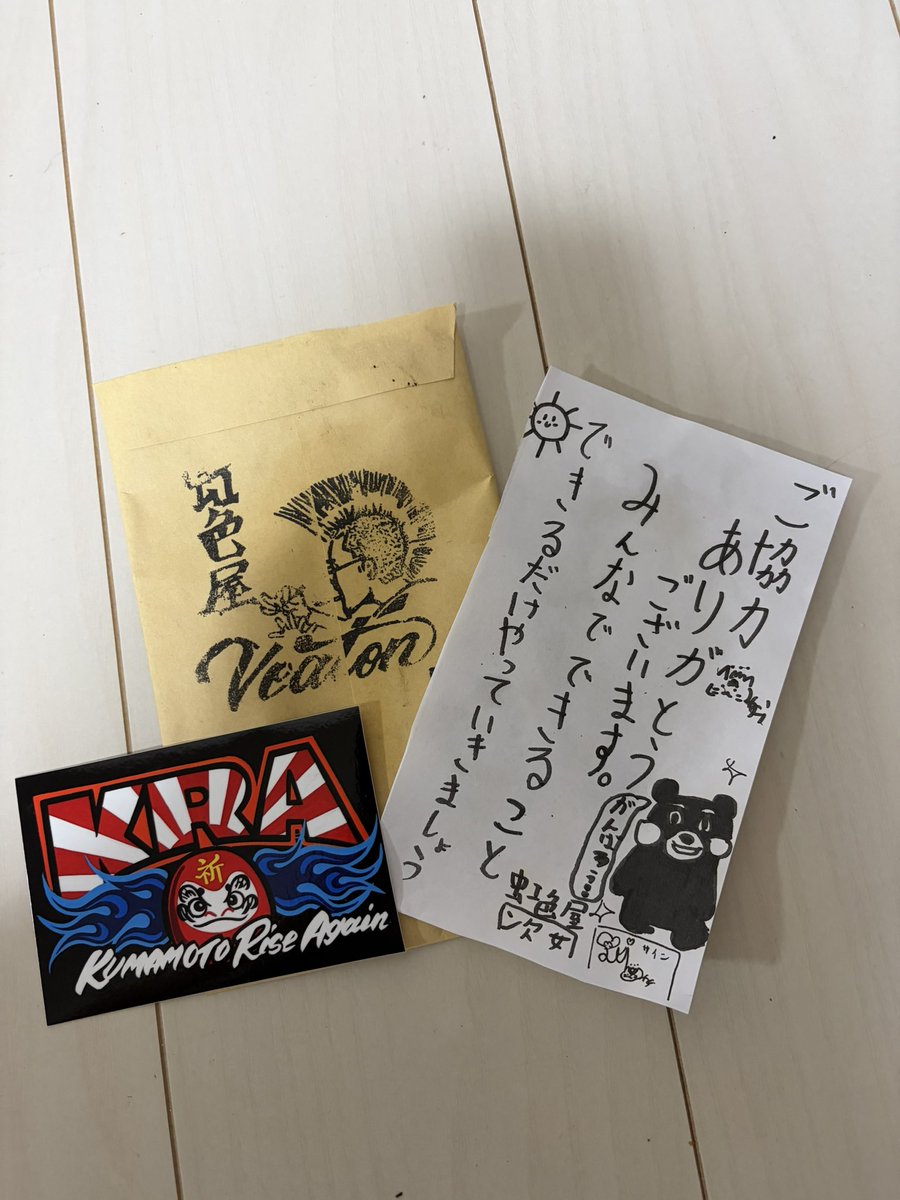 虹色屋
KRA
祈
KUMAMOTO Rise Again
ご協力
ありがとう
ございます。
みんなでできること
できるだけやっていきましょう
虹色屋
次女
サイン